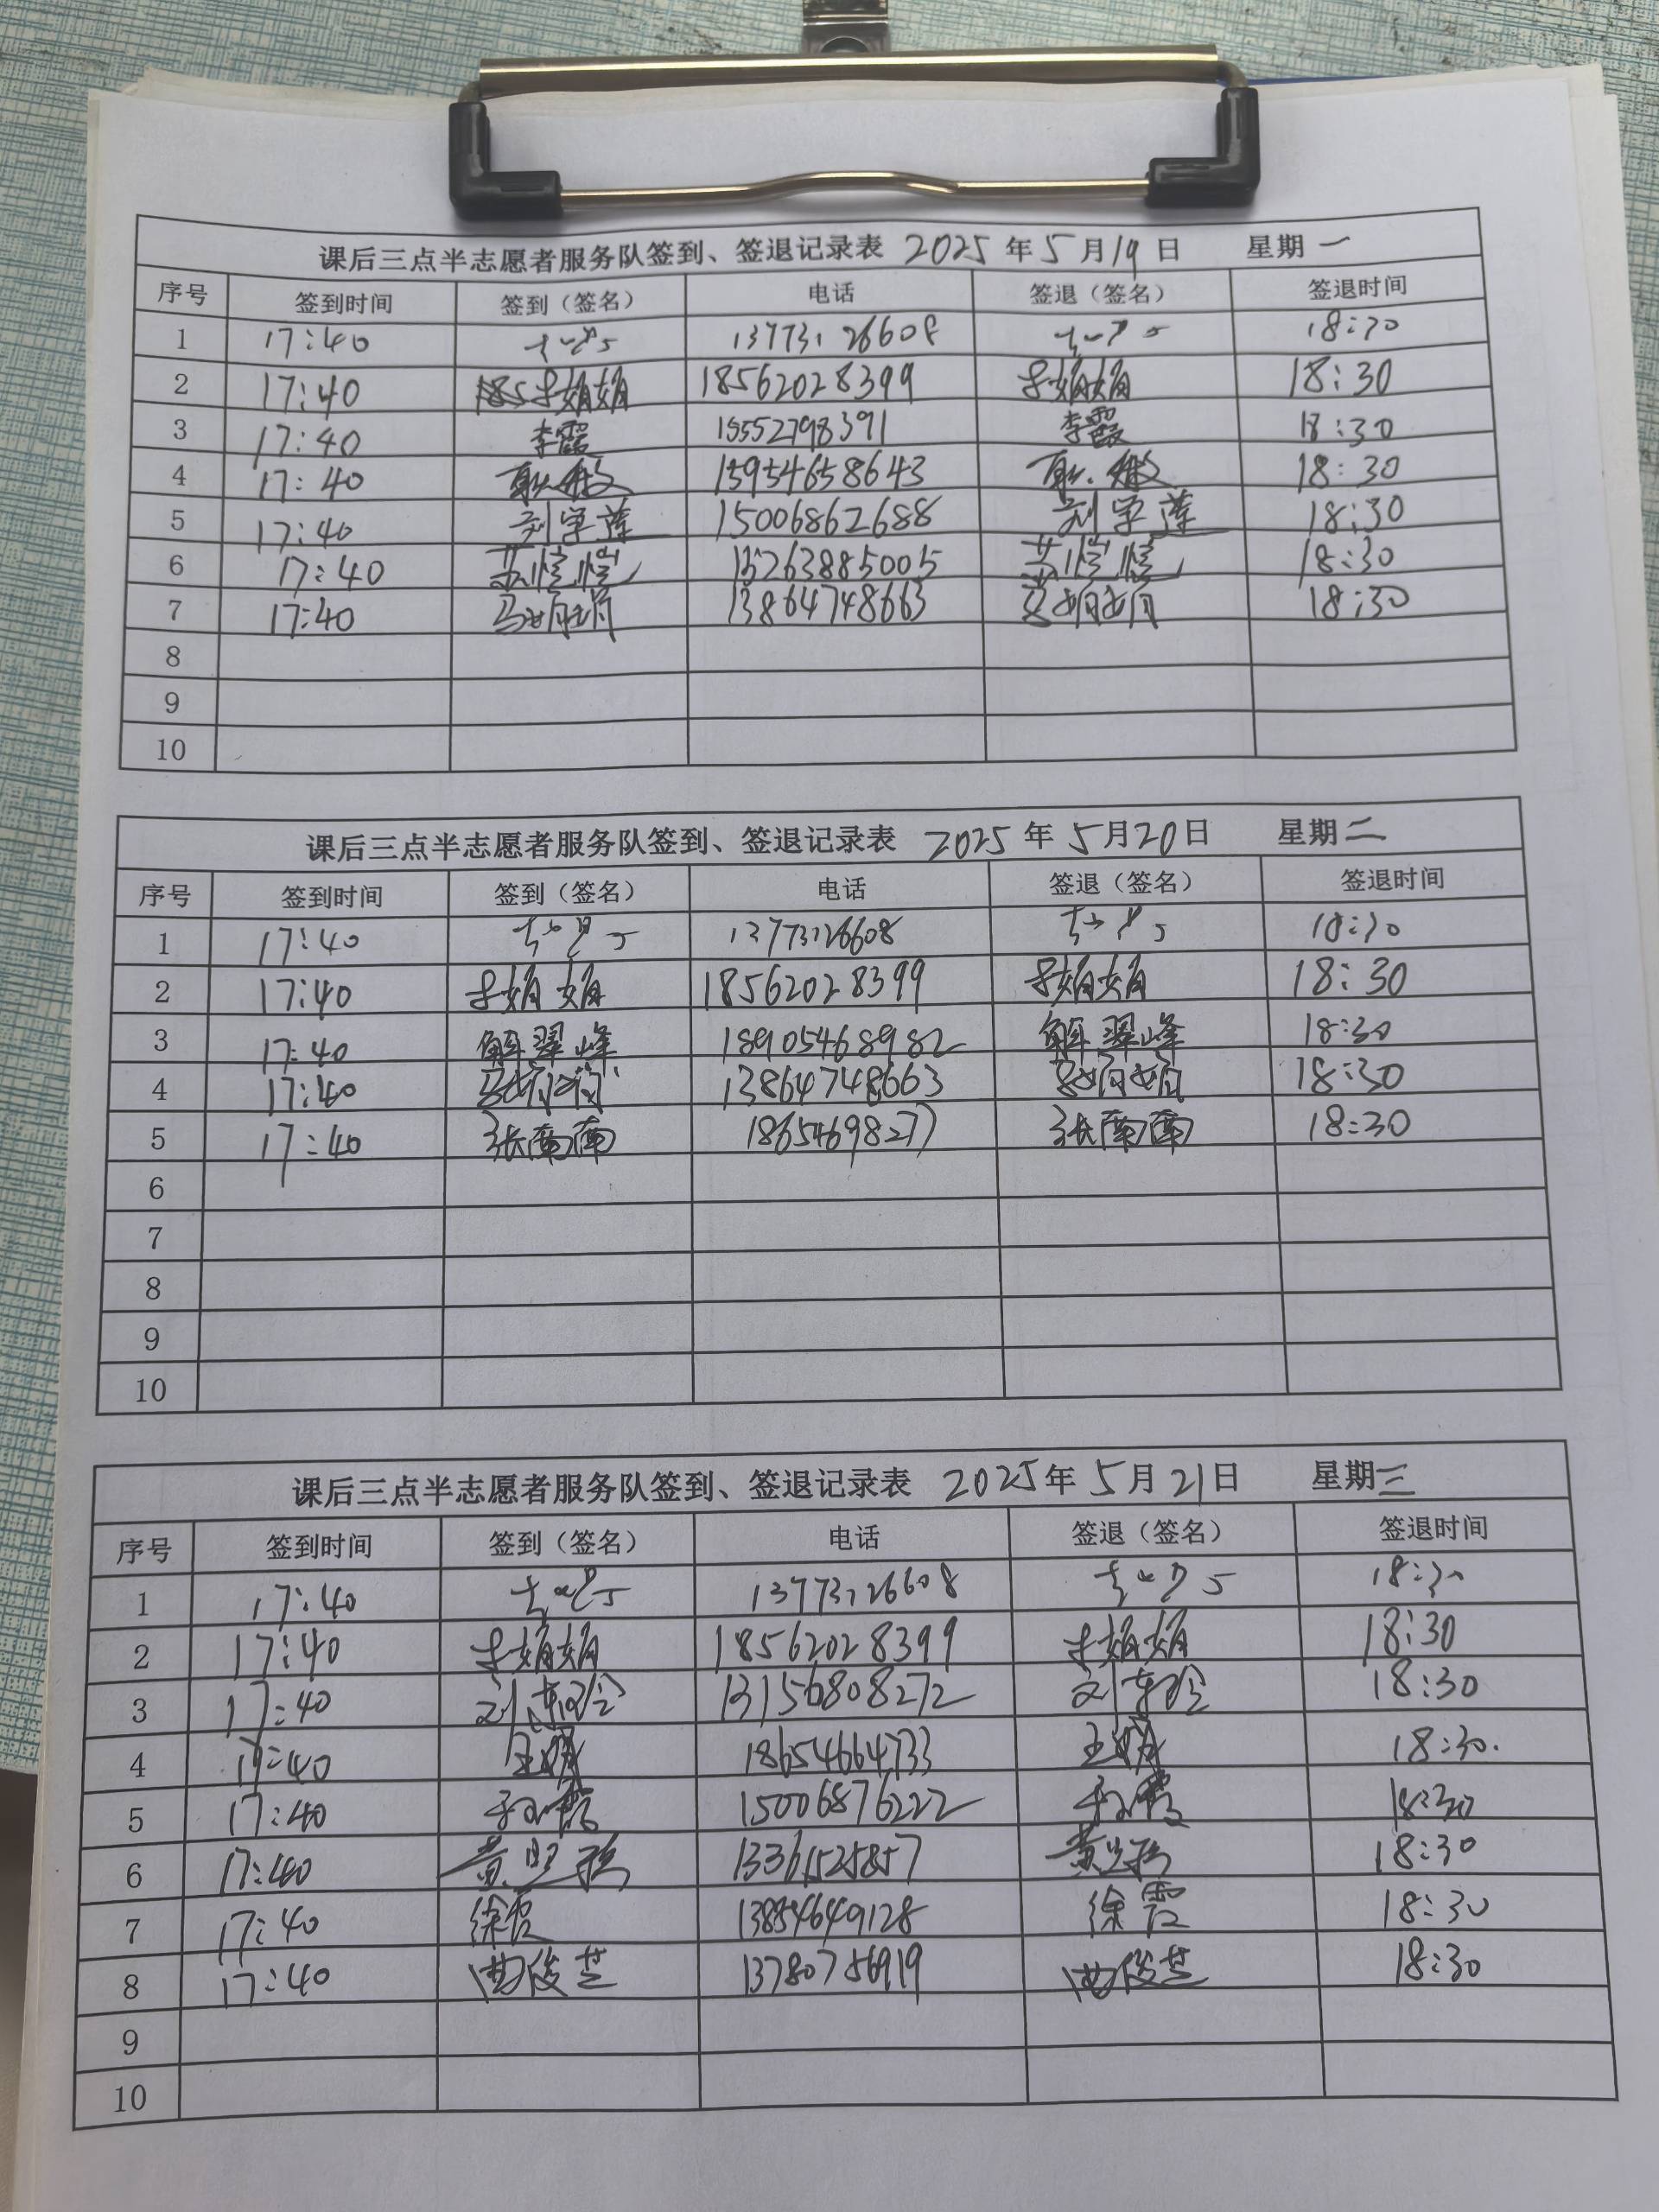 课后三点半志愿者服务队签到、签退记录表 2025年5月19日 星期一
序号 签到时间 签到（签名） 电话 签退（签名） 签退时间
1 17:40 13773126608 18:30
2 17:40 娟娟 18562028399 娟娟 18:30
3 17:40 李霞 15552798391 李霞 18:30
4 17:40 15954658643 18:30
5 17:40 刘学莲 15006862688 刘学莲 18:30
6 17:40 18:30
7 17:40 马娟娟 13864748663 马娟娟 18:30
8
9
10
课后三点半志愿者服务队签到、签退记录表 2025年5月20日 星期二
序号 签到时间 签到（签名） 电话 签退（签名） 签退时间
1 17:40 13773126608 18:30
2 17:40 娟娟 18562028399 娟娟 18:30
3 17:40 解翠峰 18905468982 解翠峰 18:30
4 17:40 马娟娟 13864748663 马娟娟 18:30
5 17:40 张南南 18654698277 张南南 18:30
6
7
8
9
10
课后三点半志愿者服务队签到、签退记录表 2025年5月21日 星期三
序号 签到时间 签到（签名） 电话 签退（签名） 签退时间
1 17:40 13773126608 18:30
2 17:40 娟娟 18562028399 娟娟 18:30
3 17:40 刘 13156808272 刘 18:30
4 17:40 王 18654664733 王 18:30.
5 17:40 15006876222 18:30
6 17:40 黄 13361525857 黄 18:30
7 17:40 徐霞 徐霞 18:30
8 17:40 曲俊芝 13780756919 曲俊芝 18:30
9
10